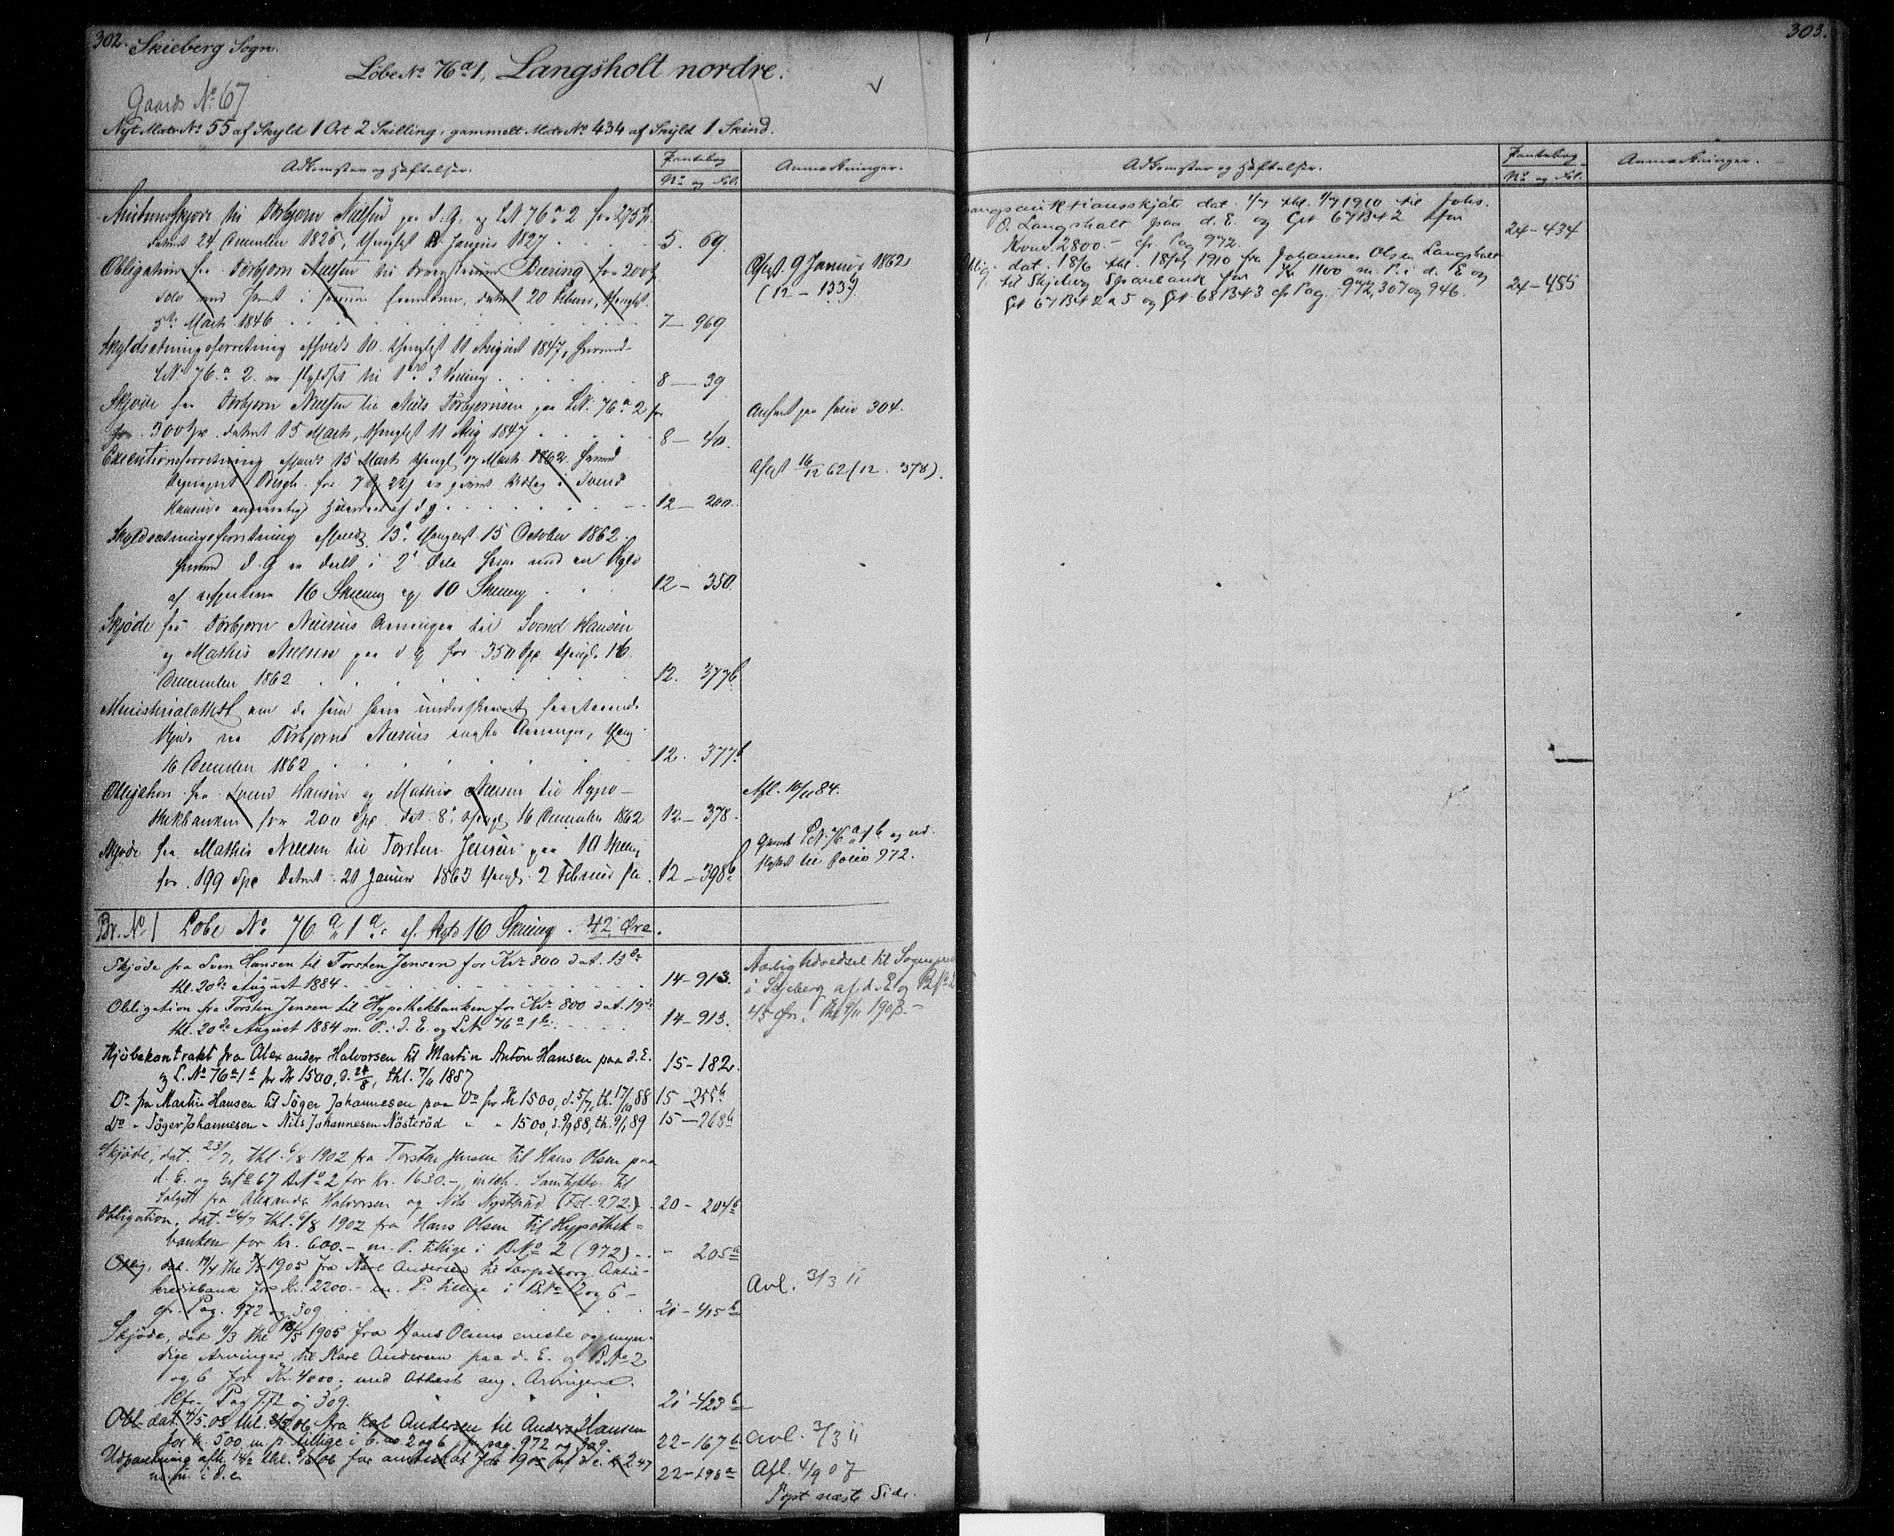 302.
Skieberg Sogn.
Løbe No 76 a 1, Langsholt nordre.
Gaards No 67
Nyt Matr No 55 af Skyld 1 Ort 2 Skilling, gammelt Matr No 434 af Skyld 1 Skind.
Adkomster og Hæftelser.
Pantebog
No og Fol.
Anmærkninger.
Auctionsskjøde til Torbjørn Nielsen paa d. G. og LN 76 a 2 for 275
datert 24 December 1826, thinglyst Januar 1827
5. 69.
Obligation fra Torbjørn Nielsen til Buring for 200
med Pant i samme datert 20 Februar, thinglyst
5te Marts 1846
7 — 969
Afløst 9 Januar 1862
(12 — 133).
Skyldsætningsforretning afholdt 10. thinglyst 11 August 1847, hvorved
LN. 76. a 2. er skyldsat til
8 — 39
Skjøde fra Torbjørn Nielsen til Niels Torbjørnsen paa LN. 76 a 2
for 300 Spd. datert 15 Marts, thinglyst 11 Aug 1847
8 — 40.
Anført paa folio 304.
Executionsforretning afholdt 15 Marts thingl. 17 Marts 1862 hvorved
for 7 Spd 22 er gjort Udlæg i Svend
Hansens Halvdeel af d. g
12 — 200.
Aflyst 16/12 62 (12. 378).
Skyldsætningsforretning afholdt 13de thinglyst 15 October 1862.
hvorved d. G er deelt i 2de Dele hver med en Skyld
af respective 16 Skilling og 10 Skilling
12 — 350.
Skjøde fra Torbjørn Nielsens Arvinger til Svend Hansen
og Mathis Nielsen paa d G for 350 Spd. thingl. 16.
December 1862
12. 377 b.
Ministerialattest om de som have underskrevet foranstaaende
Skjøde ere Torbjørn Nielsens eneste Arvinger, thingl.
16 December 1862
12. 377 b
Obligation fra Svend Hansen og Mathis Nielsen til Hypo-
thekbanken for 200 Spd. dat. 8de thingl. 16 December 1862
12 — 378.
Afl. 10/11 84.
Skjøde fra Mathis Nielsen til Torsten Jensen paa 10 Skilling
for 199 Spd datert 21 Januar 1863 thingl. 2 Februar
12 — 398 b
LN. 76 a 1 b og ud-
skilt til folio 972.
Br. No 1 Løbe No 76 a 1 a. af Skyld 16 Skilling. 42 Øre.
Skjøde fra Sven Hansen til Torsten Jensen for Kr. 800 dat. 13de
thl. 20de August 1884.
14 — 913.
Obligation fra Torsten Jensen til Hypothekbanken for Kr. 800 dat. 19de
thl. 20de August 1884 m. P. i d. E. og LN 76 a 1 b.
14 — 913.
Aarlig til
i Skjeberg af d. E og B.No 2
45 Øre. thl. 9/11 1903. —
Kjøbekontrakt fra Alexander Halvorsen til Martin Anton Hansen paa d. E.
og L. No 76 a 1 b for Kr 1500, d. 24/8, thl. 7/11 1887
15 — 182.
Do fra Martin Hansen til Tøger Johannesen paa Do for Kr 1500, d. 5/7, th. 17/10 88
15 — 255 b
Do " Tøger Johannesen " Nils Johannesen Nösteröd " " 1500, d. 5/9 88, th. 9/1 89
15 — 268 b
Skjøde, dat. 23/7, thl. 6/8 1902 fra Torsten Jensen til Hans Olsen paa
d. E. og GNo 67 BNo 2 for Kr. 1630.—, indeh. Samtykke til
Salget fra Alexander Halvorsen og Nils Nysterud (Fol. 972).
20 — 204 b
Obligation, dat. 26/7 thl. 6/8 1902 fra Hans Olsen til Hypothek-
banken for Kr. 600.— m. P. tillige i BNo 2 (972)
" 205 a
Oblig. dat. 19/4 thl 1905 fra Karl Andersen til Sarpsborg Aktie-
kreditbank for Kr. 2200.— m. P. tillige i BNo 2 og 6 —
cfr. Pag. 972 og 309
21 — 415 b
Avl. 3/3 11
Skjøde, dat 11/3 thl 18/5 1905 fra Hans Olsens eneste og myn-
dige Arvinger til Karl Andersen paa d. E. og BNo 2
og 6 for Kr. 4000.— med Attest ang. Arvingerne.
Cfr. Pag 972 og 309.
21 — 423 b
Obl. dat. 4/5. 05 thl. 06 fra Karl Andersen til Anders Hansen
for kr. 500 m p. tillige i b. no 2 og 6 pag. 972 og 309.
22 — 167 b
Avl. 3/3 11
Udpantning afh. 14/2 thl. 06 for 1905 paa d. e. kr 2.47
m. m. i d. e
22 — 196 a
Afl. 4/9 07
næste Side.
303.
Adkomster og Hæftelser.
Pantebog
No og Fol.
Anmærkninger.
auktionsskjøte dat. 1/7 thl. 1/7 1910 til Johs.
O. Langsholt paa d. E. og Gr 67 B# 2 for
Kroner 2800.— cfr. Pag 972.
24 — 434
Oblig. dat. 18/6 thl. 1910 fra Johannes Olsen Langsholt
til Skjeberg Sparebank for Kr 1100 m. P. i d. E og
Gr 67 B# 2 a 5 og Gr 68 B# 3 cfr Pag. 972, 307 og 946.
24 — 485